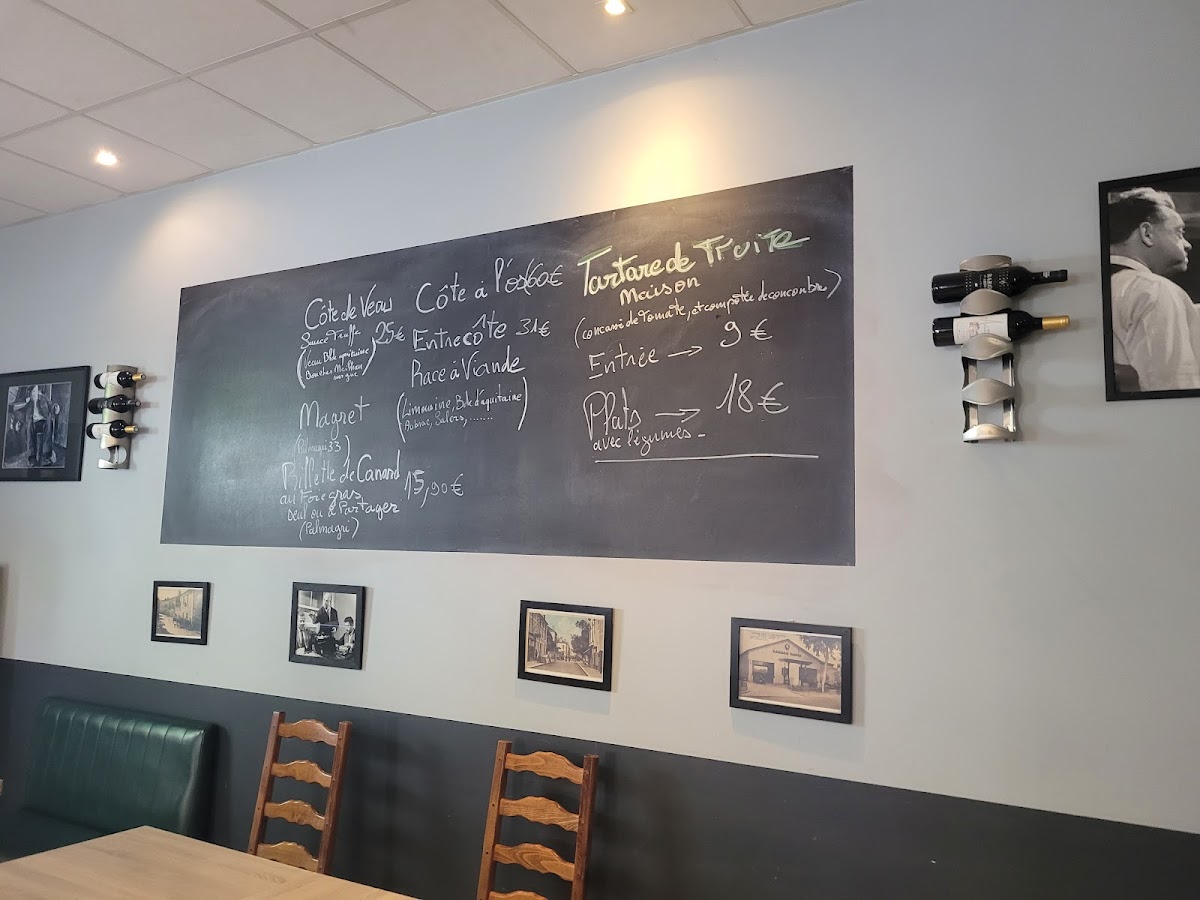 Côte de Veau
Sauce Truffe 25€
(Veau Bde Aquitaine
Magret
(Palmagri 33)
Rillette de Canard
au Foie gras 15,90€
Seul ou à Partager
(Palmagri)
Côte à l'os 60€
Entrecôte 31€
Race à Viande
(Limousine, Bde d'aquitaine
Aubrac, Salers, .......)
Tartare de Truite
Maison
(concassé de tomate, et compotée de concombre)
Entrée → 9€
Plats → 18€
avec légumes -